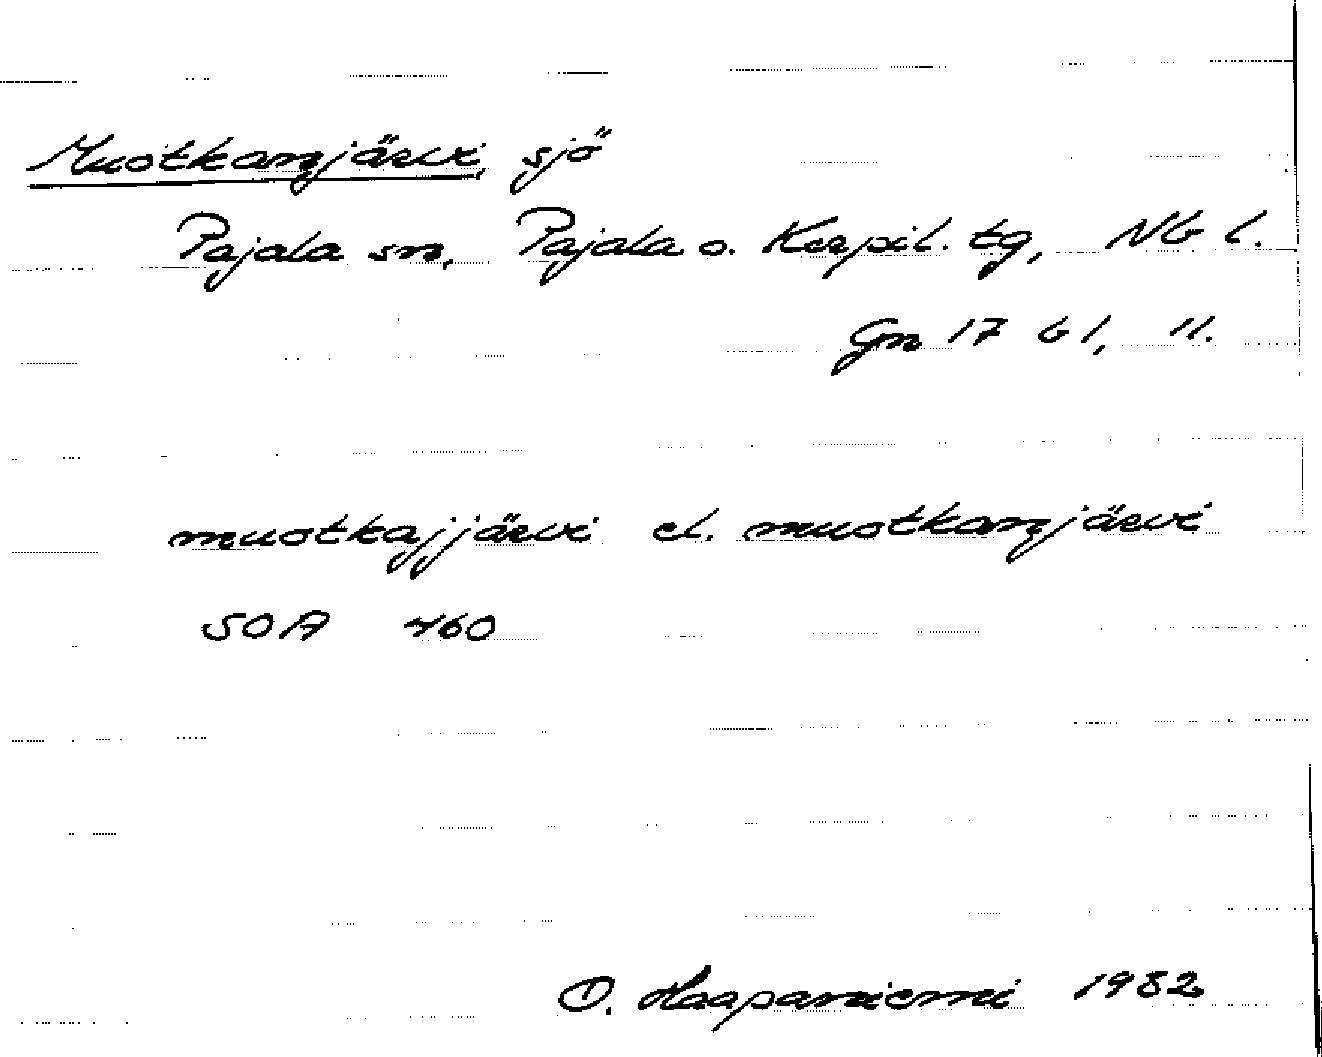 Muotkanjärvi, sjö
Pajala sn, Pajala o. Korpil. tg, Nb l.
Gn 17 b1, 11.
muotkajjärvi el. muotkanjärvi
SOA 460
O. Haapaniemi 1982